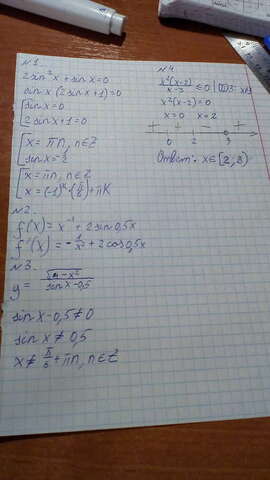 N1.
2sin²x+sinx=0
sinx(2sinx+1)=0
[sinx=0
[2sinx+1=0
[x=πn, n∈Z
[sinx=-½
[x=πn, n∈Z
[x=(-1)ᵏ·(π/6)+πk
N2.
f(x)=x⁻¹+2sin0,5x
f'(x)=-1/x²+2cos0,5x
N3.
y=√(4-x²)/(sinx-0,5)
sinx-0,5≠0
sinx≠0,5
x≠π/6+πn, n∈Z
N4.
x²(x-2)/(x-3)≤0 | ОДЗ: x≠
x²(x-2)=0
x=0 x=2
+ + - +
0 2 3
Ответ: x∈[2;3)